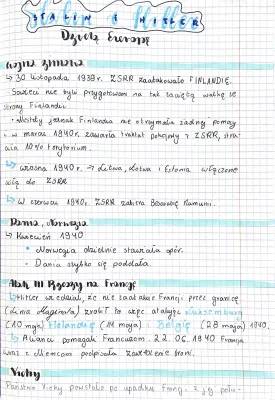 STALIN I HITLER
Dzielą Europę
Wojna zimowa
↳ 30 listopada 1939r. ZSRR zaatakowało FINLANDIĘ.
Sowieci nie byli przygotowani na tak zaciętą walkę ze
strony Finlandii.
• Niestety jednak Finlandia nie otrzymała żadnej pomocy
i w marcu 1940r. zawarła traktat pokojowy z ZSRR, stra-
ciła 10% terytorium.
↳ wiosna 1940r. → Litwa, Łotwa i Estonia włączone
do ZSRR
↳ W czerwcu 1940r. ZSRR zabrał Besarabię Rumunii.
Dania, Norwegia
↳ Kwiecień 1940
• Norwegia dzielnie stawiała opór.
• Dania szybko się poddała.
Atak III Rzeszy na Francję
↳ Hitler wiedział, że nie zaatakuje Francji przez granicę
(Linia Maginota) zrobił to więc atakując Luksemburg
(10 maja) Holandię (14 maja) Belgię (28 maja) 1940.
↳ Alianci pomagali Francuzom. 22.06.1940 Francja
wraz z Niemcami podpisała zawieszenie broni.
Vichy
Państwo Vichy powstało po upadku Francji z jej połu-